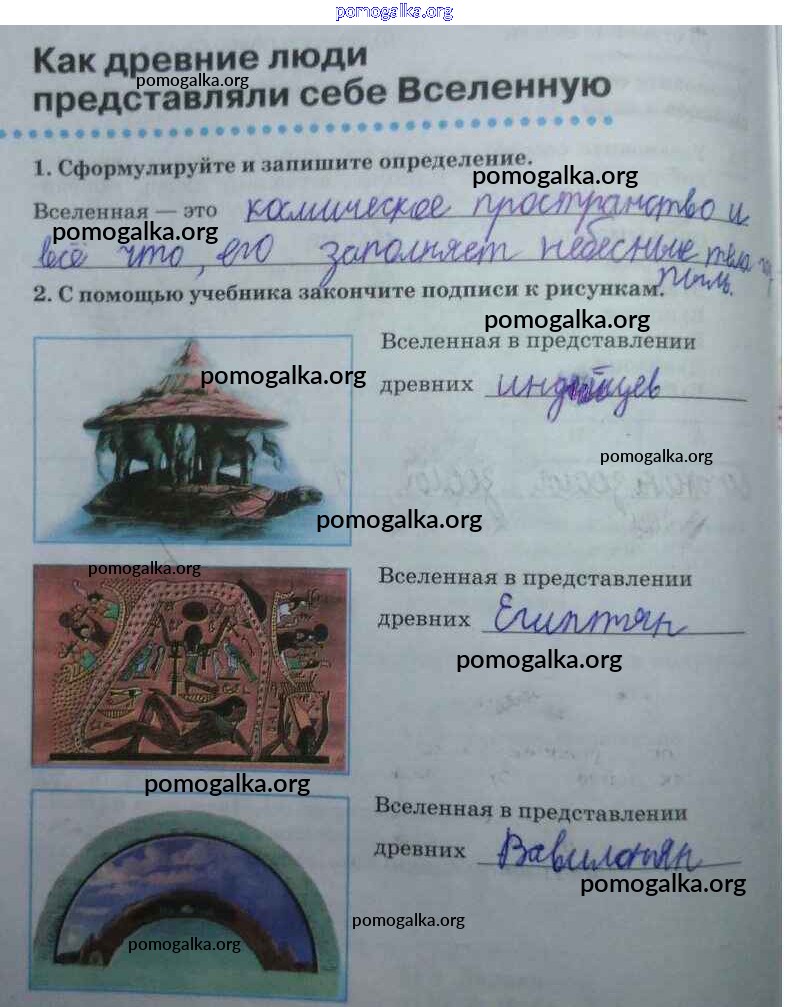 pomogalka.org
Как древние люди
pomogalka.org
представляли себе Вселенную
1. Сформулируйте и запишите определение.
pomogalka.org
Вселенная — это космическое пространство и
pomogalka.org
всё что, его заполняет небесные тела газ,
пыль.
2. С помощью учебника закончите подписи к рисункам.
pomogalka.org
Вселенная в представлении
pomogalka.org
древних индийцев
pomogalka.org
pomogalka.org
pomogalka.org
Вселенная в представлении
древних Египтян
pomogalka.org
pomogalka.org
Вселенная в представлении
древних Вавилонян
pomogalka.org
pomogalka.org
pomogalka.org